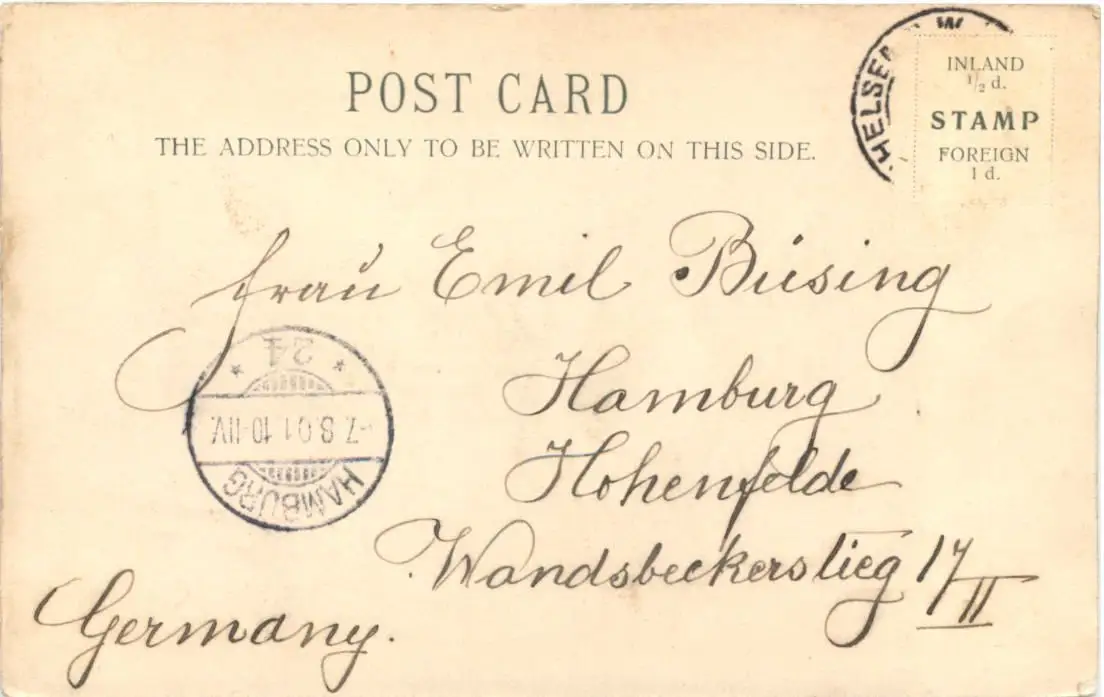 POST CARD
THE ADDRESS ONLY TO BE WRITTEN ON THIS SIDE.
CHELSEA W
INLAND
½ d.
STAMP
FOREIGN
1 d.
Frau Emil Büsing
Hamburg
Hohenfelde
Wandsbeckerstieg 17/II
Germany.
HAMBURG
-7.8.01 10-11V.
* 24 *